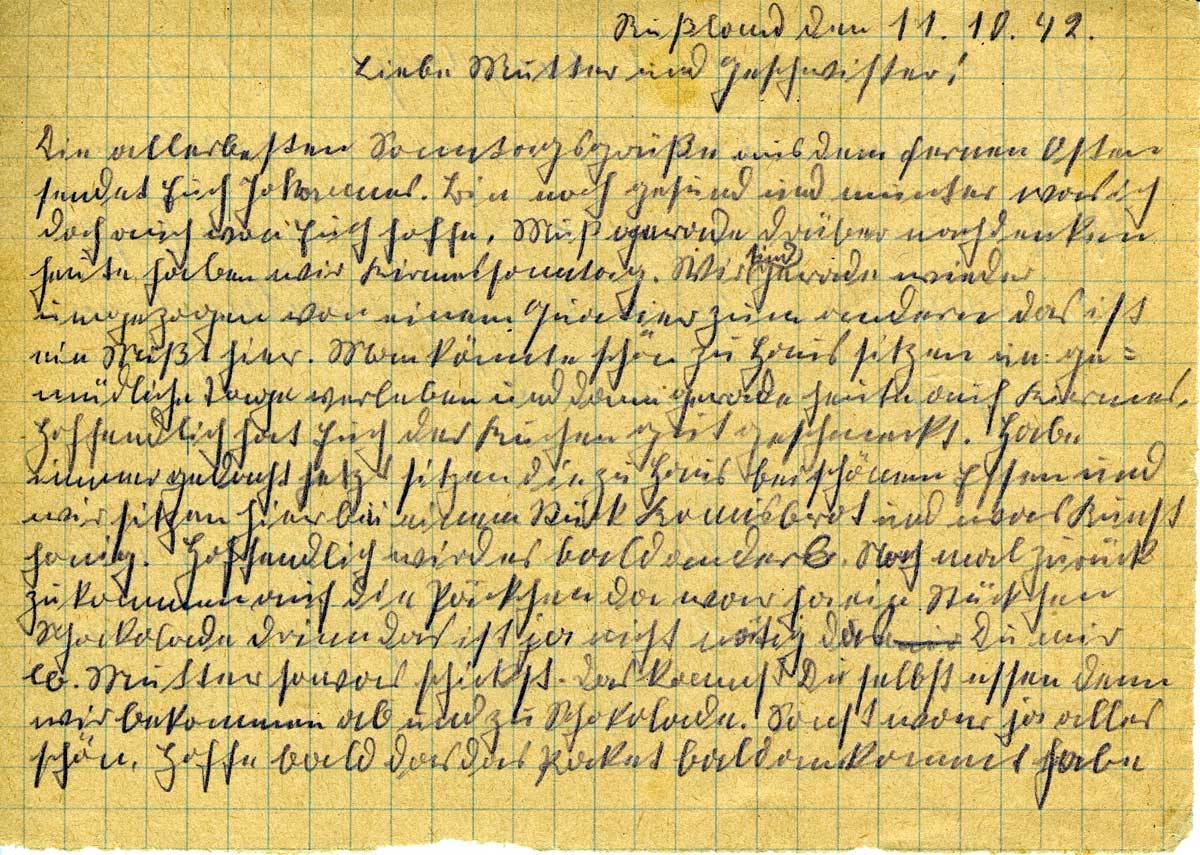 Rußland den 11. 10. 42.
Liebe Mutter und Geschwister!
Die allerbesten Sonntagsgrüße aus dem fernen Osten
sendet Euch Johannes. Bin noch gesund und munter was ich
doch auch von Euch hoffe. Muß gerade drüber nachdenken
heute haben wir Kirmessonntag. Wir sind gerade wieder
umgezogen von einem Quartier zum andern das ist
ein Muß hier. Man könnte schön zu Haus sitzen u. ge=
müdliche Tage verleben und dann gerade heute auf Kirmes.
Hoffendlich hat Euch der Kuchen gut geschmeckt. Habe
immer gedacht jetzt sitzen die zu Haus bei schönem Essen und
wir sitzen hier bei einem Stück Komisbrot und was Kunst
honig. Hoffendlich wird es bald anders. Noch mal zurück
zu kommen auf die Päckchen da war ja ein Stückchen
Schokolade drinn das ist ja nicht nötig das Du mir
lb. Mutter sowas schickst. Das kannst Du selbst essen denn
wir bekommen ab und zu Schokolade. Sonst war ja alles
schön. Hoffe bald das das Paket bald ankommt habe